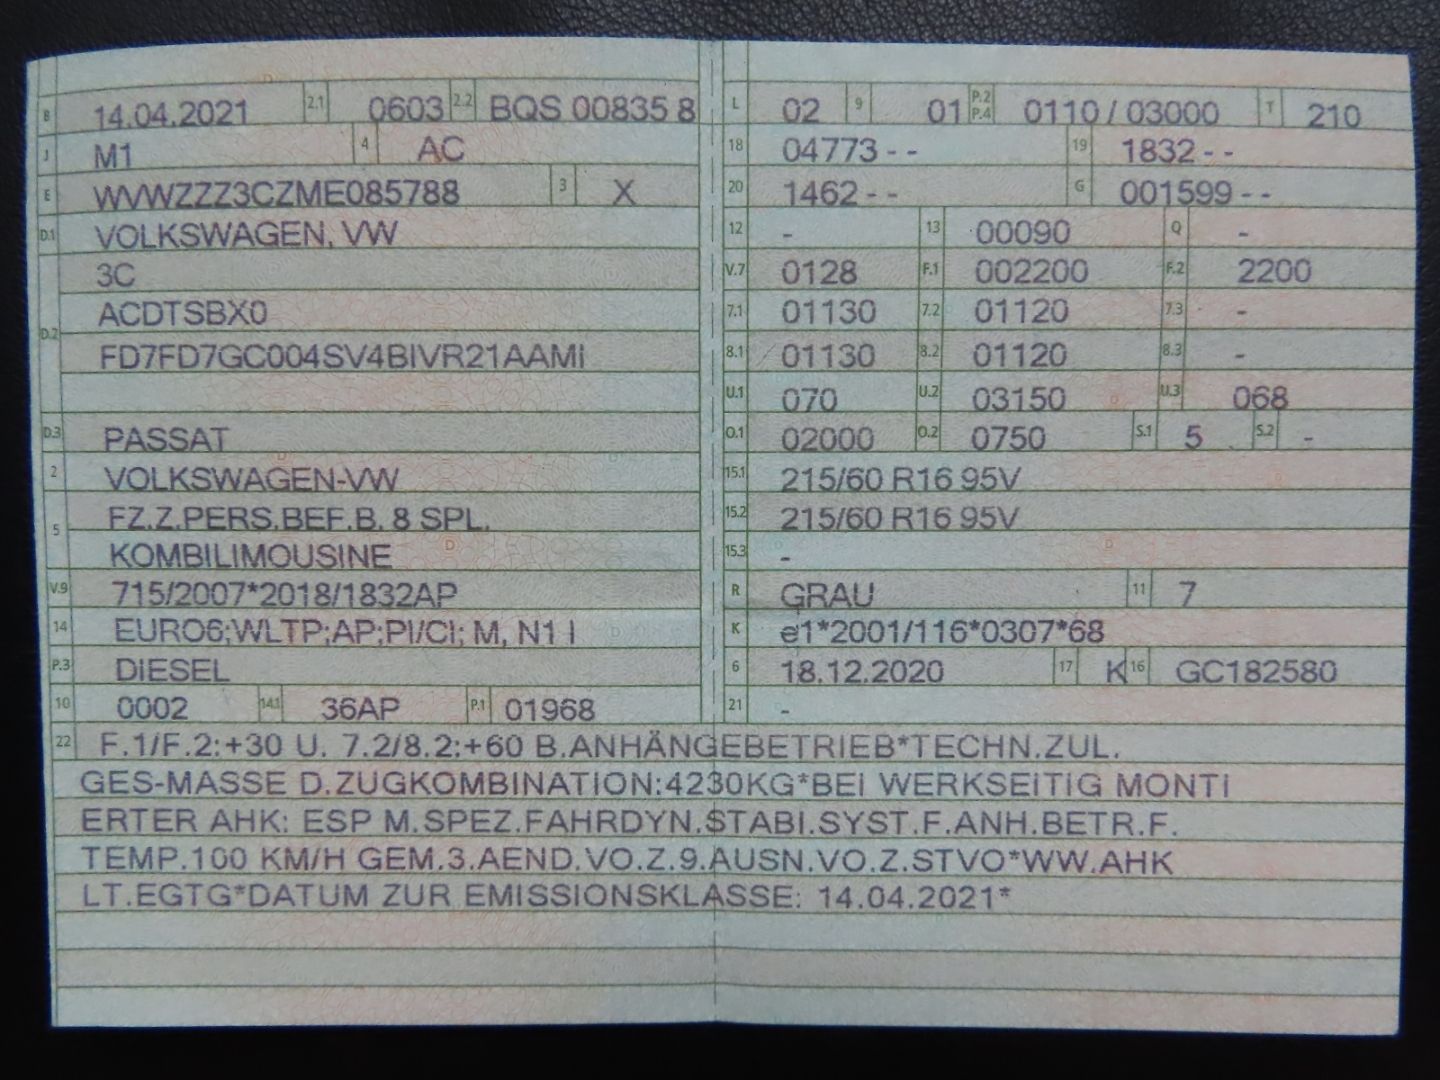 B 14.04.2021 2.1 0603 2.2 BQS 00835 8
J M1 4 AC
E WVWZZZ3CZME085788 3 X
D.1 VOLKSWAGEN, VW
3C
D.2 ACDTSBX0
FD7FD7GC004SV4BIVR21AAMI
D.3 PASSAT
2 VOLKSWAGEN-VW
5 FZ.Z.PERS.BEF.B. 8 SPL.
KOMBILIMOUSINE
V.9 715/2007*2018/1832AP
14 EURO6;WLTP;AP;PI/CI; M, N1 I
P.3 DIESEL
10 0002 14.1 36AP P.1 01968
L 02 9 01 P.2 P.4 0110 / 03000 T 210
18 04773 - - 19 1832 - -
20 1462 - - G 001599 - -
12 - 13 00090 Q -
V.7 0128 F.1 002200 F.2 2200
7.1 01130 7.2 01120 7.3 -
8.1 01130 8.2 01120 8.3 -
U.1 070 U.2 03150 U.3 068
O.1 02000 O.2 0750 S.1 5 S.2 -
15.1 215/60 R16 95V
15.2 215/60 R16 95V
15.3 -
R GRAU 11 7
K e1*2001/116*0307*68
6 18.12.2020 17 K 16 GC182580
21 -
22 F.1/F.2:+30 U. 7.2/8.2:+60 B.ANHÄNGEBETRIEB*TECHN.ZUL.
GES-MASSE D.ZUGKOMBINATION:4230KG*BEI WERKSEITIG MONTI
ERTER AHK: ESP M.SPEZ.FAHRDYN.STABI.SYST.F.ANH.BETR.F.
TEMP.100 KM/H GEM.3.AEND.VO.Z.9.AUSN.VO.Z.STVO*WW.AHK
LT.EGTG*DATUM ZUR EMISSIONSKLASSE: 14.04.2021*